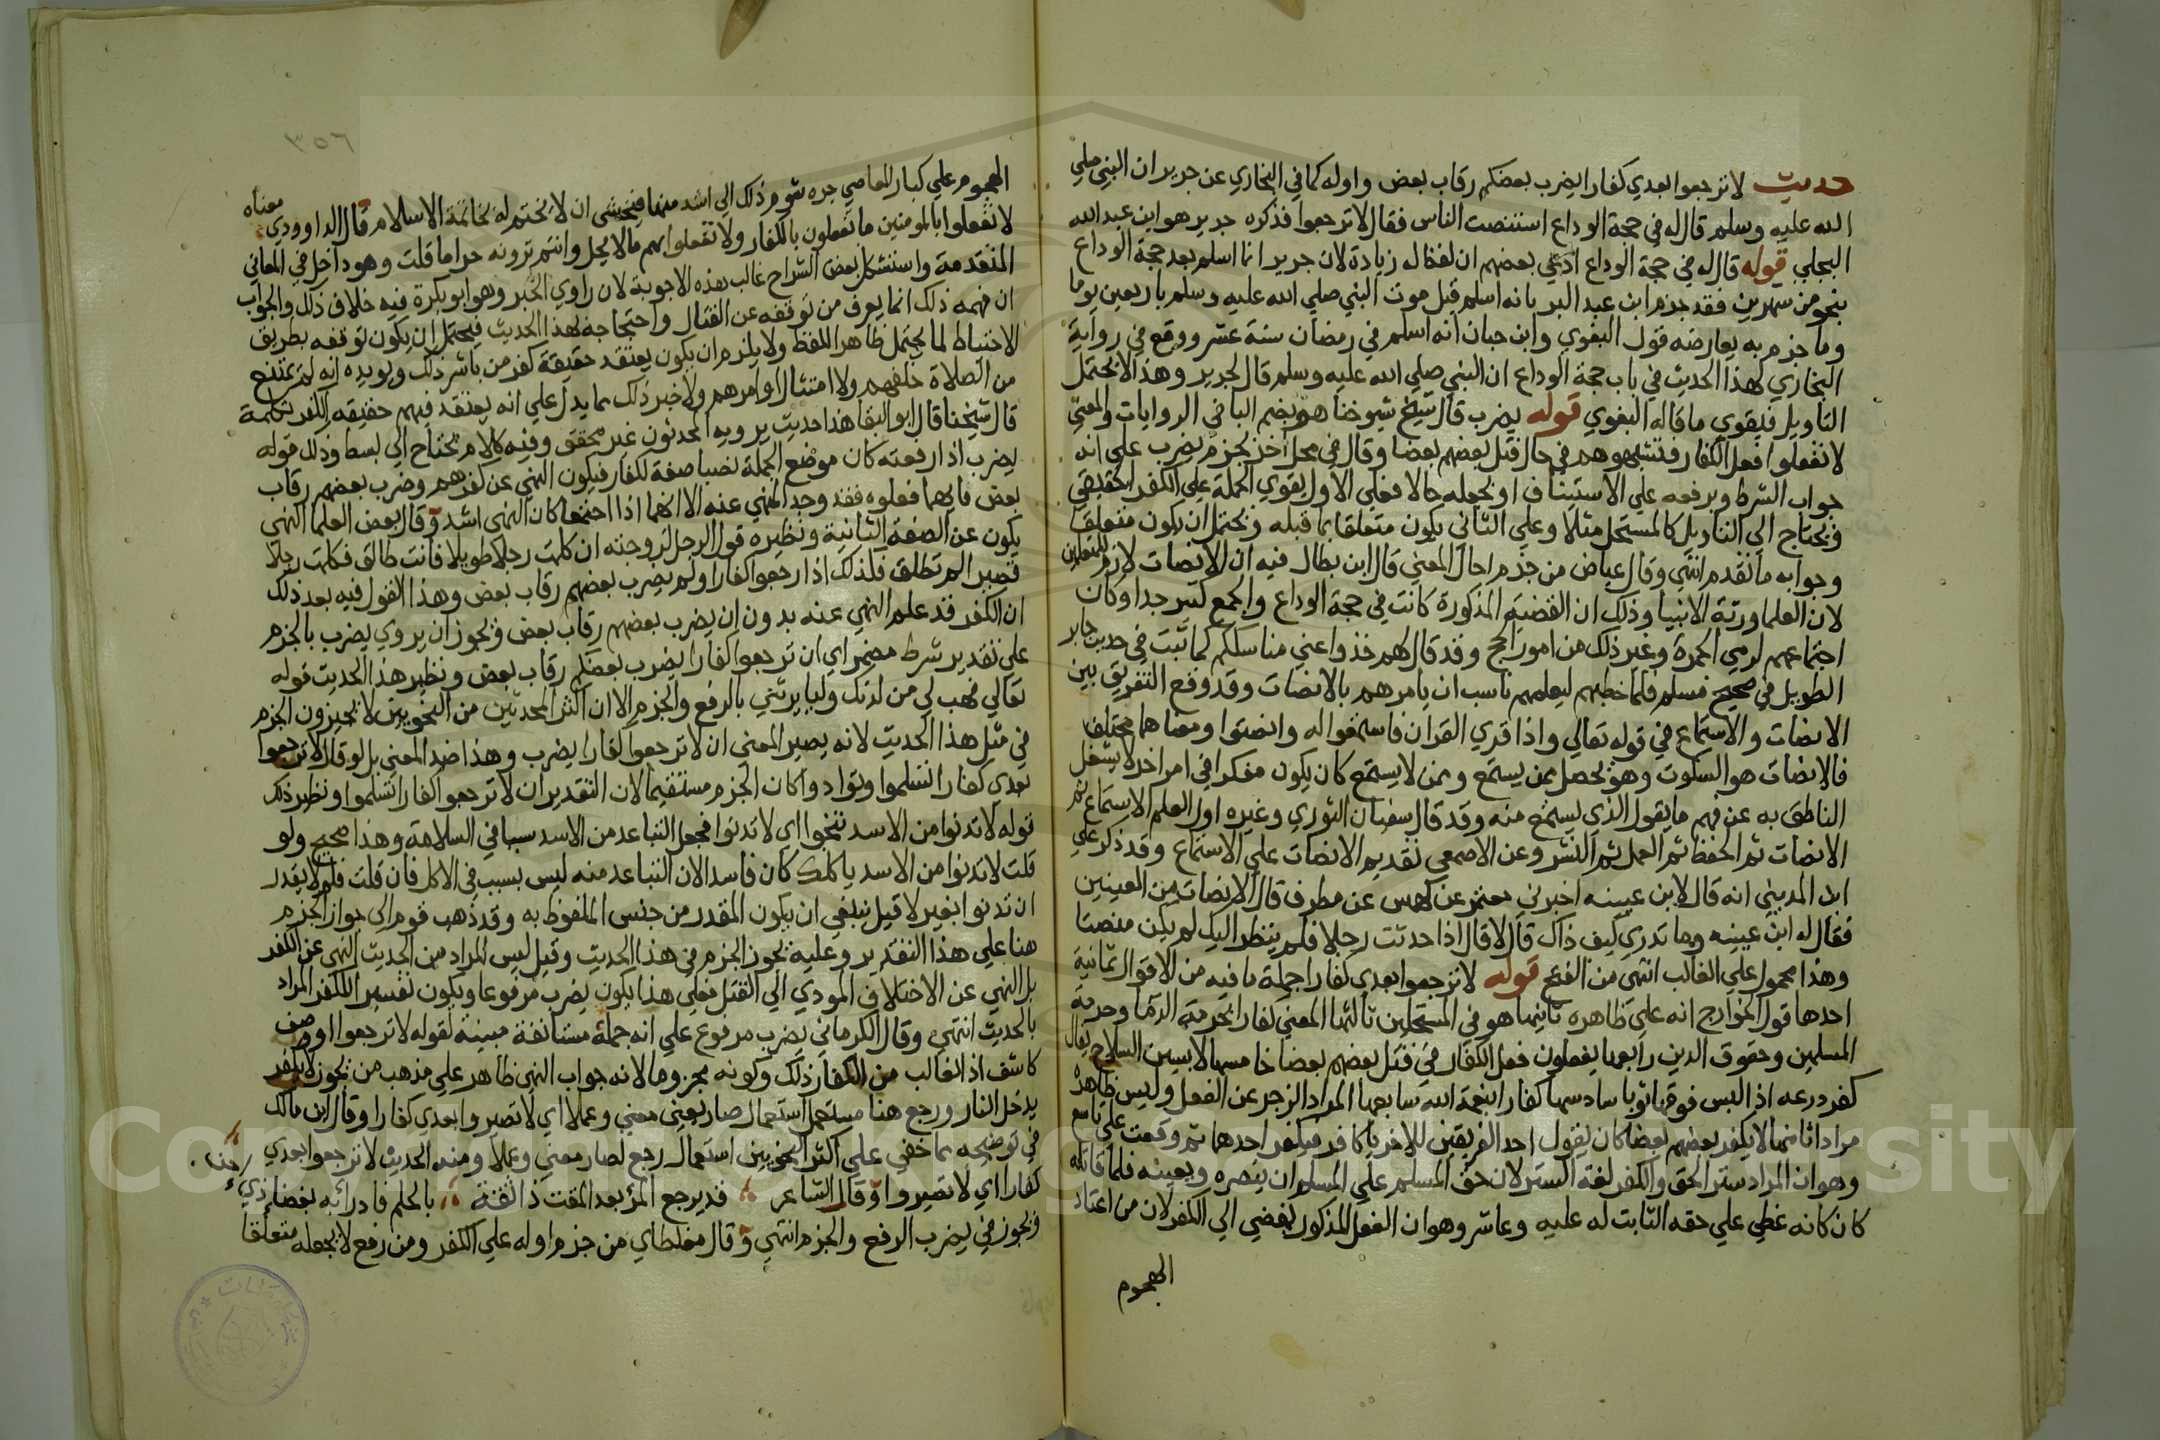 حديث لا ترجعوا بعدي كفارا يضرب بعضكم رقاب بعض واوله كما في البخاري عن جرير ان النبي صلي
الله عليه وسلم قال له في حجة الوداع استنصت الناس فقال لا ترجعوا فذكره جرير هو ابن عبد الله
البجلي قوله قال له في حجة الوداع ادعي بعضهم ان لفظ له زيادة لان جريرا انما اسلم بعد حجة الوداع
بنحو من شهرين فقد جزم ابن عبد البر بانه اسلم قبل موت النبي صلي الله عليه وسلم باربعين يوما
وما جزم به يعارضه قول البغوي وابن حبان انه اسلم في رمضان سنة عشر ووقع في رواية
البخاري لهذا الحديث في باب حجة الوداع ان النبي صلي الله عليه وسلم قال لجرير وهذا لا يحتمل
التاويل فيقوي ما قاله البغوي قوله يضرب قال شيخ شيوخنا هو بضم البا في الروايات والمعني
لا تفعلوا فعل الكفار فتشبهوهم في حال قتل بعضهم بعضا وقال في محل اخر بجزم يضرب علي انه
جواب الشرط وبرفعه علي الاستيناف او بجعله حالا فعلي الاول يقوي الحملة علي الكفر الحقيقي
ويحتاج الي التاويل كالمستحل مثلا وعلي الثاني يكون متعلقا بما قبله ويحتمل ان يكون متعلقا
وجوابه ما تقدم انتهي وقال عياض من جزم احال المعني قال ابن بطال فيه ان الانصات لازم للمتعلمين
لان العلما ورثة الانبيا وذلك ان القضية المذكورة كانت في حجة الوداع والجمع كثير جدا وكان
اجتماعهم لرمي الجمرة وغير ذلك من امور الحج وقد قال لهم خذوا عني مناسككم كما ثبت في حديث جابر
الطويل في صحيح مسلم فلما خطبهم ليعلمهم ناسب ان يامرهم بالانصات وقد وقع التفريق بين
الانصات والاستماع في قوله تعالي واذا قري القران فاستمعوا له وانصتوا ومعناهما مختلف
فالانصات هو السكوت وهو يحصل ممن يستمع وممن لا يستمع كان يكون مفكرا في امر اخر لا يشغل
الناطق به عن فهم ما يقول الذي يستمع منه وقد قال سفيان الثوري وغيره اول العلم الاستماع ثم
الانصات ثم الحفظ ثم العمل ثم النشر وعن الاصمعي تقديم الانصات علي الاستماع وقد ذكر علي
ابن المديني انه قال لابن عيينه اخبرني معتمر عن كهمس عن مطرف قال الانصات من العينين
فقال له ابن عيينه وما تدري كيف ذاك قال لا قال اذا حدثت رجلا فلم ينظر اليك لم يكن منصتا
وهذا محمول علي الغالب انتهي من الفتح قوله لا ترجعوا بعدي كفارا جملة ما فيه من الاقوال ثمانية
احدها قول الخوارج انه علي ظاهره ثانيها هو في المستحلين ثالثها المعني كفارا بحرمة الدما وحرمة
المسلمين وحقوق الدين رابعها يفعلون فعل الكفار في قتل بعضهم بعضا خامسها لابسين السلاح يقال
كفر درعه اذا البس فوقها ثوبا سادسها كفارا بنعمة الله سابعها المراد الزجر عن الفعل وليس ظاهره
مرادا ثامنها لا يكفر بعضهم بعضا كان يقول احد الفريقين للاخر يا كافر فيكفر احدهما ثم وقعت علي تاسع
وهو ان المراد ستر الحق والكفر لغة الستر لان حق المسلم علي المسلم ان ينصره ويعينه فلما قاتله
كان كانه غطي علي حقه الثابت له عليه وعاشر وهو ان الفعل المذكور يفضي الي الكفر لان من اعتاد
الهجوم
٣٥٦
الهجوم علي كبار المعاصي جره شوم ذلك الي اشد منها فيخشي ان لا يختم له بخاتمة الاسلام قال الداوودي معناه
لا تفعلوا بالمومنين ما تفعلون بالكفار ولا تفعلوا بهم ما لا يحل وانتم ترونه حراما قلت وهو داخل في المعاني
المتقدمة واستشكل بعض الشراح غالب هذه الاجوبة لان راوي الخبر وهو ابو بكرة فيه خلاف ذلك والجواب
ان فهمه ذلك انما يعرف من توقفه عن القتال واحتجاجه لهذا الحديث فيحتمل ان يكون توقفه بطريق
الاحتياط لما يحتمل ظاهر اللفظ ولا يلزم ان يكون يعتقد حقيقة كفر من باشر ذلك ويويده انه لم يمتنع
من الصلاة خلفهم ولا امتثال اوامرهم ولا غير ذلك مما يدل علي انه يعتقد فيهم حقيقه الكفر تتمة
قال شيخنا قال ابو البقا هذا حديث يرويه المحدثون غير محقق وفيه كلام يحتاج الي بسط وذلك قوله
يضرب اذا رفعته كان موضع الجملة نصبا صفة لكفار فيكون النهي عن كفرهم وضرب بعضهم رقاب
بعض فايهما فعلوه فقد وجد المنهي عنه الا انهما اذا اجتمعا كان النهي اشد وقال بعض العلما النهي
يكون عن الصفة الثانية ونظيره قول الرجل لزوجته ان كلمت رجلا طويلا فانت طالق فكلمت رجلا
قصيرا لم تطلق فلذلك اذا رجعوا كفارا ولم يضرب بعضهم رقاب بعض وهذا القول فيه بعد ذلك
ان الكفر قد علم النهي عنه بدون ان يضرب بعضهم رقاب بعض ويجوز ان يروي يضرب بالجزم
علي تقدير شرط مضمر اي ان ترجعوا كفارا يضرب بعضكم رقاب بعض ونظير هذا الحديث قوله
تعالي فهب لي من لدنك وليا يرثني بالرفع والجزم الا ان اكثر المحدثين من النحويين لا يجيزون الجزم
في مثل هذا الحديث لانه يصير المعني ان لا ترجعوا كفارا يضرب وهذا ضد المعني بل لو قال لا ترجعوا
بعدي كفارا تسلموا وتوادوا كان الجزم مستقيما لان التقدير ان لا ترجعوا كفارا تسلموا ونظير ذلك
قوله لا تدنوا من الاسد تنجوا اي لا تدنوا فجعل التباعد من الاسد سببا في السلامة وهذا صحيح ولو
قلت لا تدنوا من الاسد ياكلك كان فاسدا لان التباعد منه ليس بسبب في الاكل فان قلت فلم لا يقدر
ان تدنوا بغير لا قيل ينبغي ان يكون المقدر من جنس الملفوظ به وقد ذهب قوم الي جواز الجزم
هنا علي هذا التقدير وعليه يجوز الجزم في هذا الحديث وقيل ليس المراد من الحديث النهي عن الكفر
بل النهي عن الاختلاف المودي الي القتل فعلي هذا يكون يضرب مرفوعا ويكون تفسير الكفر المراد
بالحديث انتهي وقال الكرماني يضرب مرفوع علي انه جملة مستانفة مبينة لقوله لا ترجعوا او وصف
كاشف اذ الغالب من الكفار ذلك وكونه مجزوما لانه جواب النهي ظاهر علي مذهب من يجوز لا تكفر
يدخل النار ورجع هنا مستعمل استعمال صار معني وعملا اي لا تصيروا بعدي كفارا وقال ابن مالك
في توضيحه مما خفي علي اكثر النحويين استعمال رجع لصار معني وعملا ومنه الحديث لا ترجعوا بعدي
كفارا اي لا تصيروا وقال الشاعر قد يرجع المرء بعد المقت ذا مقة بالحلم فادرا به بغضا ذي احن
ويجوز في يضرب الرفع والجزم انتهي وقال مغلطاي من جزم اوله علي الكفر ومن رفع لا يجعله متعلقا